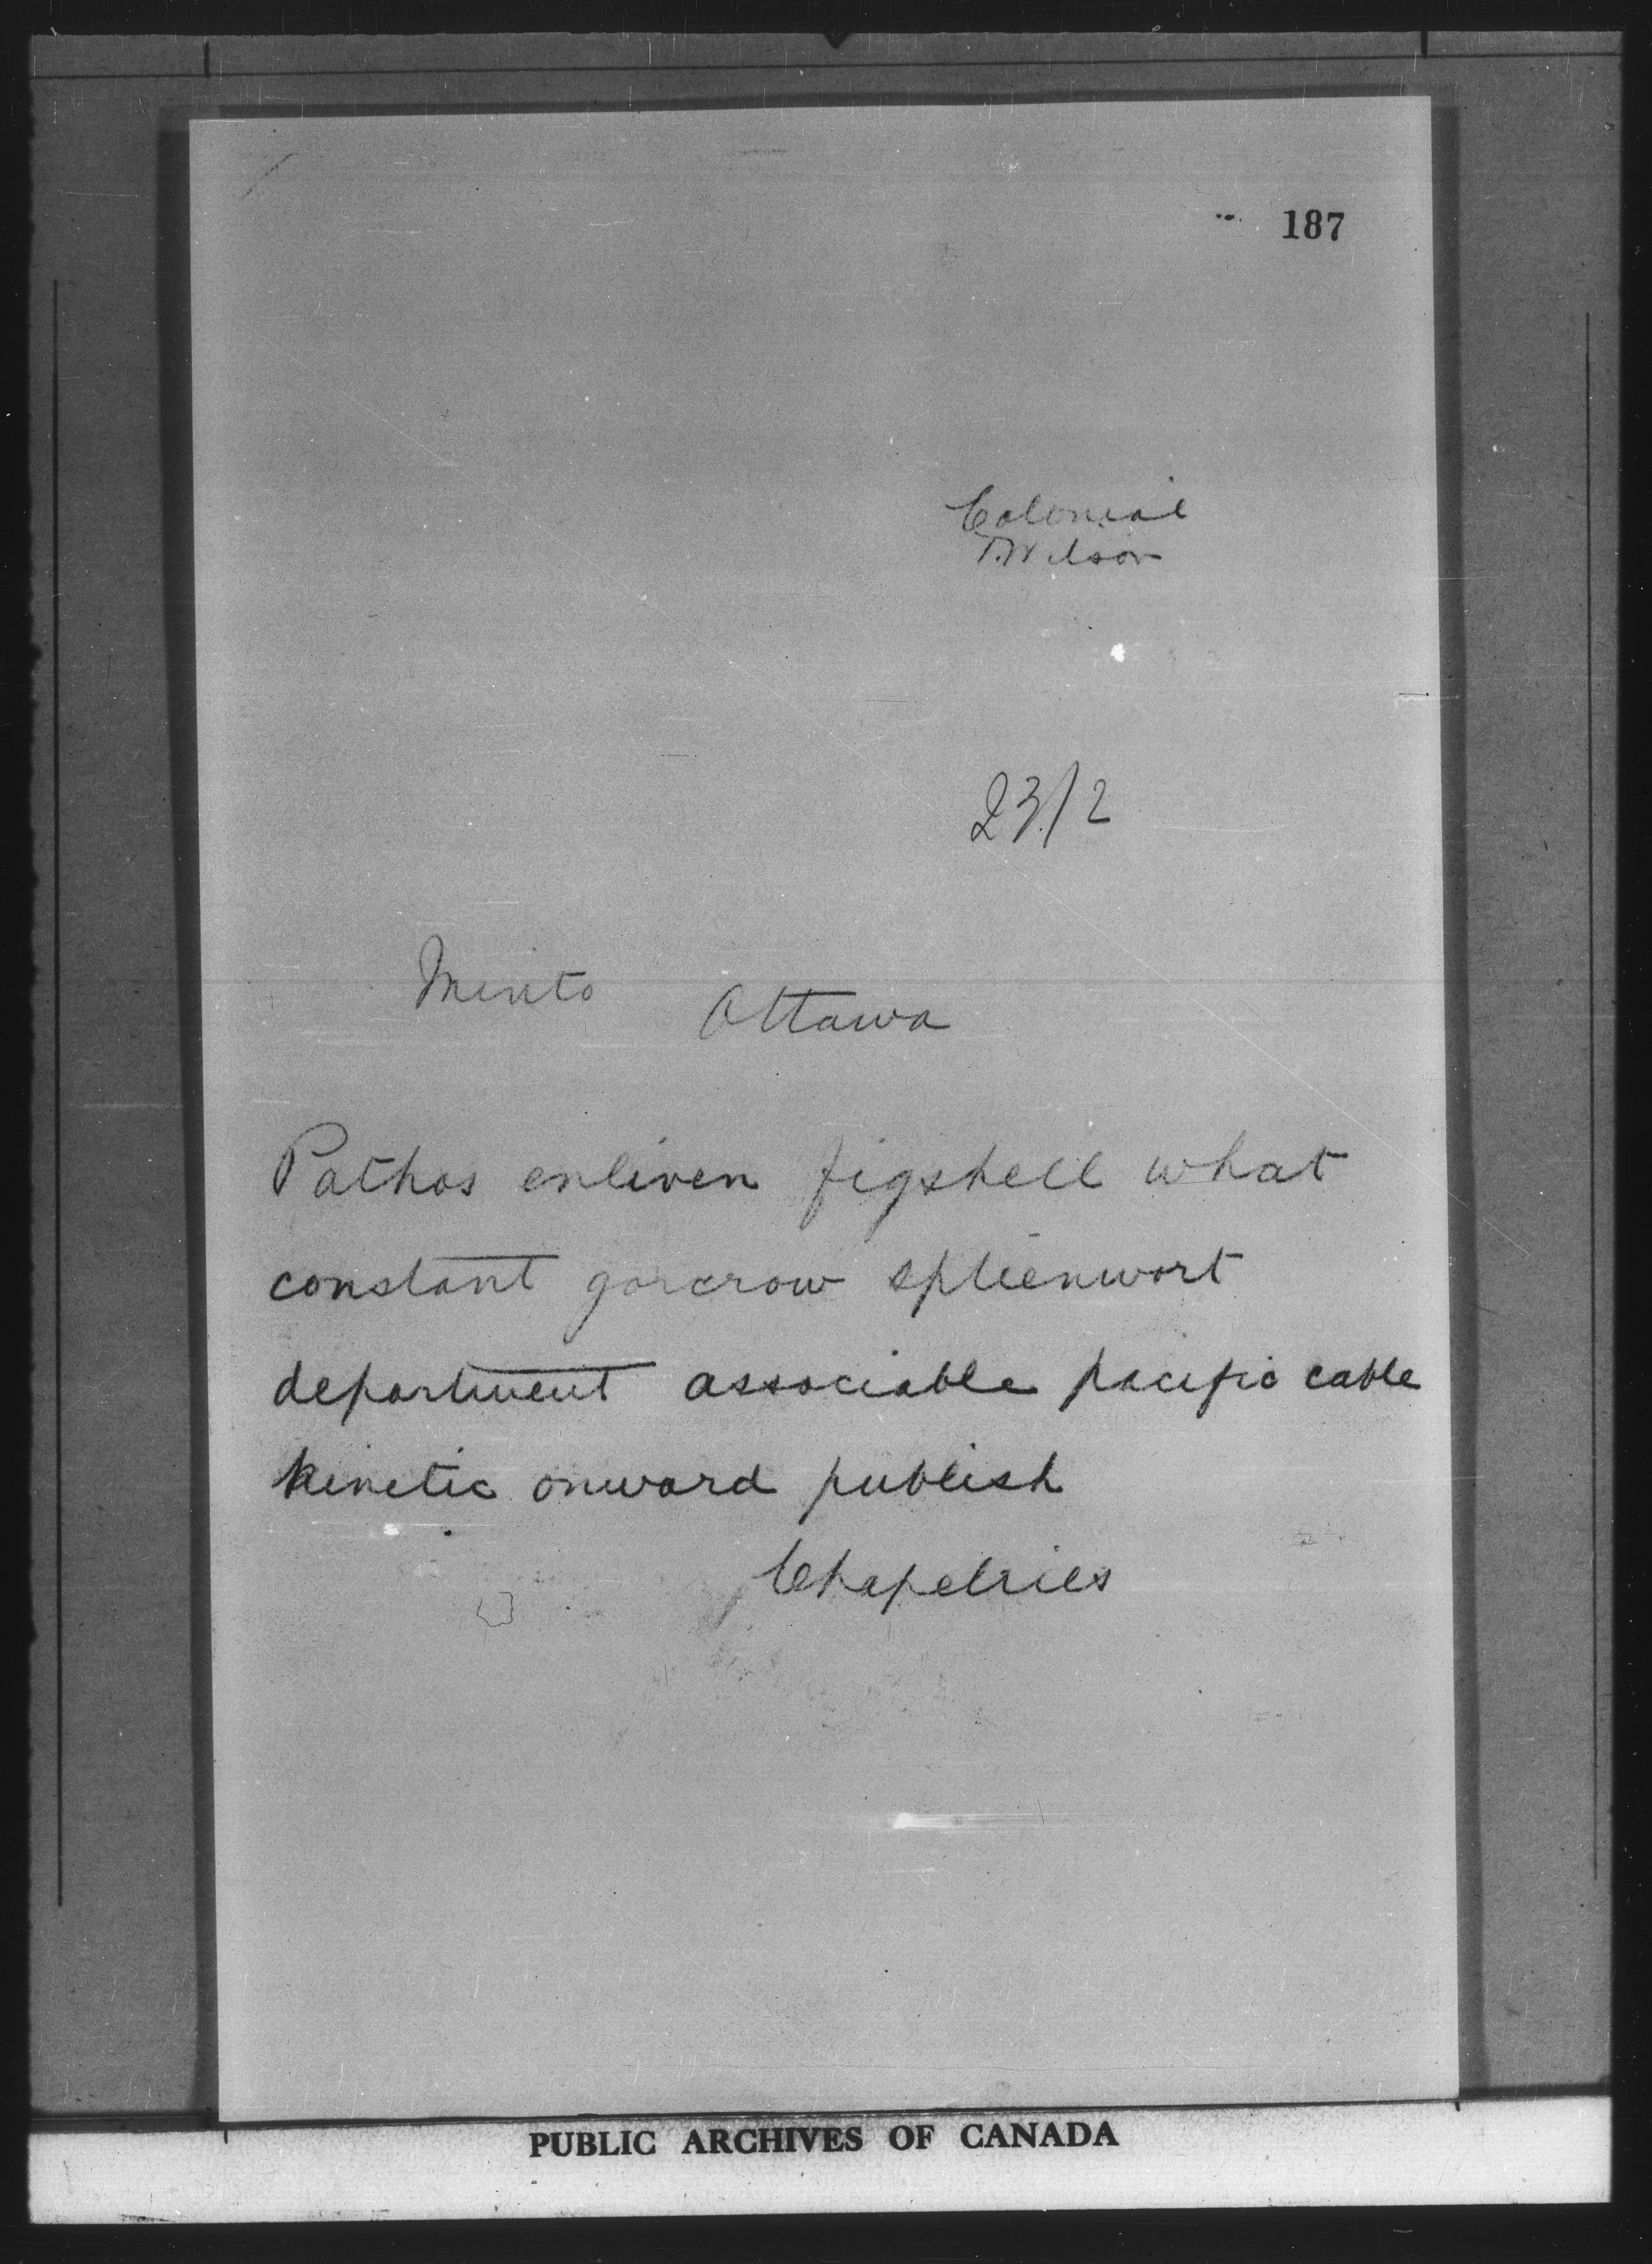 187
Colonial
Wilson
23/2
Minto Ottawa
Pathos enliven figshell what
constant gorcrow spleenwort
department associable pacific cable
kinetic onward publish
Chapelries
PUBLIC ARCHIVES OF CANADA